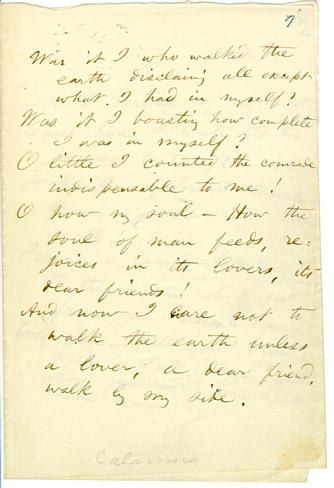 7
Was it I who walked the
earth disclaiming all except
what I had in myself?
Was it I boasting how complete
I was in myself?
O little I counted the comrade
indispensable to me!
O how my soul — How the
soul of man feeds, re-
joices in its lovers, its
dear friends!
And now I care not to
walk the earth unless
a lover, a dear friend,
walk by my side.
Calamus